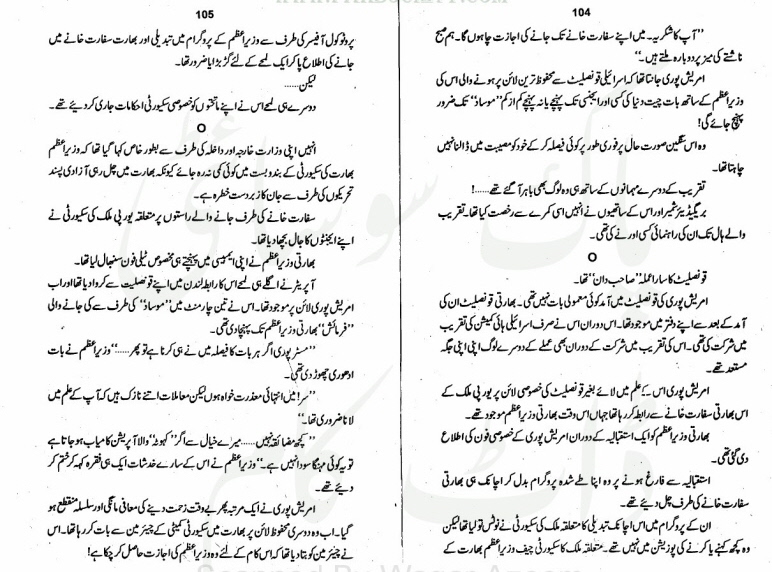 104
”آپ کا شکریہ۔ میں اپنے سفارت خانے تک جانے کی اجازت چاہوں گا۔ ہم صبح
ناشتے کی میز پر دوبارہ ملتے ہیں۔“
امریش پوری جانتا تھا کہ اسرائیلی قونصلیٹ سے محفوظ ترین لائن پر ہونے والی اس کی
وزیراعظم کے ساتھ بات چیت دنیا کی کسی اور ایجنسی تک پہنچے یا نہ پہنچے کم از کم ”موساد“ تک ضرور
پہنچ جائے گی!
وہ اس سنگین صورت حال پر فوری طور پر کوئی فیصلہ کر کے خود کو مصیبت میں ڈالنا نہیں
چاہتا تھا۔
تقریب کے دوسرے مہمانوں کے ساتھ ہی وہ لوگ بھی باہر آ گئے تھے......!
بریگیڈیئر شمیر اور اس کے ساتھیوں نے انہیں اسی کمرے سے رخصت کیا تھا۔ تقریب
والے ہال تک ان کی راہنمائی کسی اور نے کی تھی۔
O
قونصلیٹ کا سارا عملہ ”صاحب دان“ تھا۔
امریش پوری کی قونصلیٹ میں آمد کوئی معمولی بات نہیں تھی۔ بھارتی قونصلیٹ ان کی
آمد کے بعد سے اپنے دفتر میں موجود تھا۔ اس دوران اس نے صرف اسرائیلی ہائی کمیشن کی تقریب
میں شرکت کی تھی۔ اس کی تقریب میں شرکت کے دوران بھی عملے کے دوسرے لوگ اپنی اپنی جگہ
مستعد تھے۔
امریش پوری اس کے علم میں لائے بغیر قونصلیٹ کی خصوصی لائن پر یورپی ملک کے
اس بھارتی سفارت خانے سے رابطہ کر رہا تھا جہاں اس وقت بھارتی وزیراعظم موجود تھے۔
بھارتی وزیراعظم کو ایک استقبالیہ کے دوران امریش پوری کے خصوصی فون کی اطلاع
دی گئی تھی۔
استقبالیہ سے فارغ ہونے پر وہ اپنا طے شدہ پروگرام بدل کر اچانک ہی بھارتی
سفارت خانے کی طرف چل دیئے تھے۔
ان کے پروگرام میں اس اچانک تبدیلی کا متعلقہ ملک کی سکیورٹی نے نوٹس تو لیا تھا لیکن
وہ کچھ کہنے یا کرنے کی پوزیشن میں نہیں تھے۔ متعلقہ ملک کا سکیورٹی چیف وزیراعظم بھارت کے
105
پروٹوکول آفیسر کی طرف سے وزیراعظم کے پروگرام میں تبدیلی اور بھارت سفارت خانے میں
جانے کی اطلاع پا کر ایک لمحے کے لئے گڑبڑایا ضرور تھا۔
لیکن......
دوسرے ہی لمحے اس نے اپنے ماتحتوں کو خصوصی سکیورٹی احکامات جاری کر دیئے تھے۔
O
انہیں اپنی وزارت خارجہ اور داخلہ کی طرف سے بطور خاص کہا گیا تھا کہ وزیراعظم
بھارت کی سکیورٹی کے بندوبست میں کوئی کمی نہ رہ جائے کیونکہ بھارت میں چل رہی آزادی پسند
تحریکوں کی طرف سے جان کا زبردست خطرہ ہے۔
سفارت خانے کی طرف جانے والے راستوں پر متعلقہ یورپی ملک کی سکیورٹی نے
اپنے ایجنٹوں کا جال بچھا دیا تھا۔
بھارتی وزیراعظم نے اپنی ایمبیسی میں پہنچتے ہی مخصوص ٹیلی فون سنبھال لیا تھا۔
آپریٹر نے اگلے ہی لمحے اس کا رابطہ لندن میں اپنے قونصلیٹ سے کروا دیا تھا اور اب
امریش پوری لائن پر موجود تھا۔ اس نے تین چار منٹ میں ”موساد“ کی طرف سے کی جانے والی
”فرمائش“ بھارتی وزیراعظم تک پہنچا دی تھی۔
”مسٹر پوری اگر ہر بات کا فیصلہ میں نے ہی کرنا ہے تو پھر......“ وزیراعظم نے بات
ادھوری چھوڑ دی تھی۔
”سر! میں انتہائی معذرت خواہ ہوں لیکن معاملات اتنے نازک ہیں کہ آپ کے علم میں
لانا ضروری تھا۔“
”کچھ مضائقہ نہیں...... میرے خیال سے اگر ”کہوٹہ“ والا آپریشن کامیاب ہو جاتا ہے
تو یہ کوئی مہنگا سودا نہیں ہے۔“ وزیراعظم نے اس کے سارے خدشات ایک ہی فقرہ کہہ کر ختم کر
دیئے تھے۔
امریش پوری نے ایک مرتبہ پھر بے وقت زحمت دینے کی معافی مانگی اور سلسلہ منقطع ہو
گیا۔ اب وہ دوسری محفوظ لائن پر بھارت میں سکیورٹی کمیٹی کے چیئرمین سے بات کر رہا تھا۔ اس
نے چیئرمین کو بتا دیا تھا کہ اس کام کے لئے وہ وزیراعظم کی اجازت حاصل کر چکا ہے!